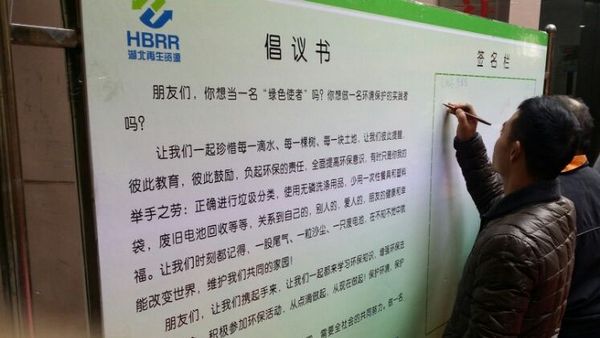 HBRR
湖北再生资源
倡议书
签名栏
朋友们，你想当一名“绿色使者”吗？你想做一名环境保护的实践者
吗？
让我们一起珍惜每一滴水、每一棵树、每一块土地，让我们彼此提醒，
彼此教育，彼此鼓励，负起环保的责任，全面提高环保意识，有时只是你我的
举手之劳：正确进行垃圾分类，使用无磷洗涤用品，少用一次性餐具和塑料
袋，废旧电池回收等等，关系到自己的，别人的，爱人的，朋友的健康和幸
福。让我们时刻都记得，一段尾气、一粒沙尘、一只废电池，在不知不觉中就
能改变世界，维护我们共同的家园！
朋友们，让我们携起手来，让我们一起都来学习环保知识，增强环保活
积极参加环保活动，从点滴做起，从现在做起！保护环境，保护
需要全社会的共同努力。每一名